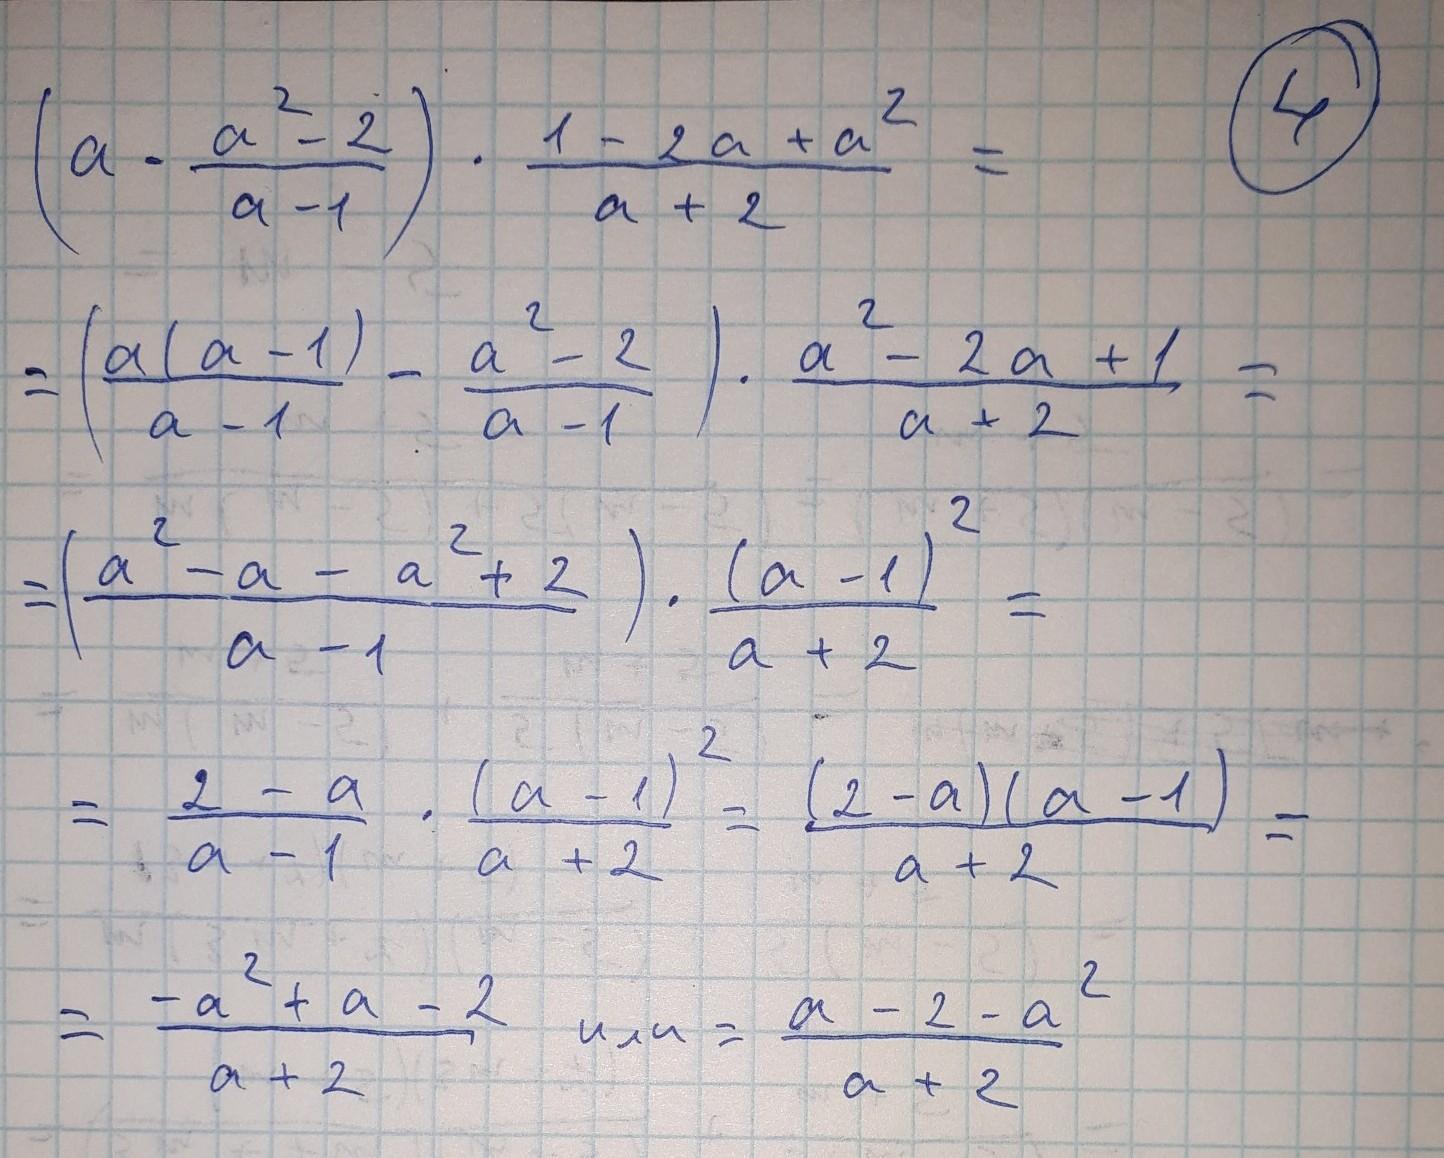 (a - \frac{a^2 - 2}{a - 1}) \cdot \frac{1 - 2a + a^2}{a + 2} = 4
= (\frac{a(a - 1)}{a - 1} - \frac{a^2 - 2}{a - 1}) \cdot \frac{a^2 - 2a + 1}{a + 2} =
= (\frac{a^2 - a - a^2 + 2}{a - 1}) \cdot \frac{(a - 1)^2}{a + 2} =
= \frac{2 - a}{a - 1} \cdot \frac{(a - 1)^2}{a + 2} = \frac{(2 - a)(a - 1)}{a + 2} =
= \frac{-a^2 + a - 2}{a + 2} или = \frac{a - 2 - a^2}{a + 2}